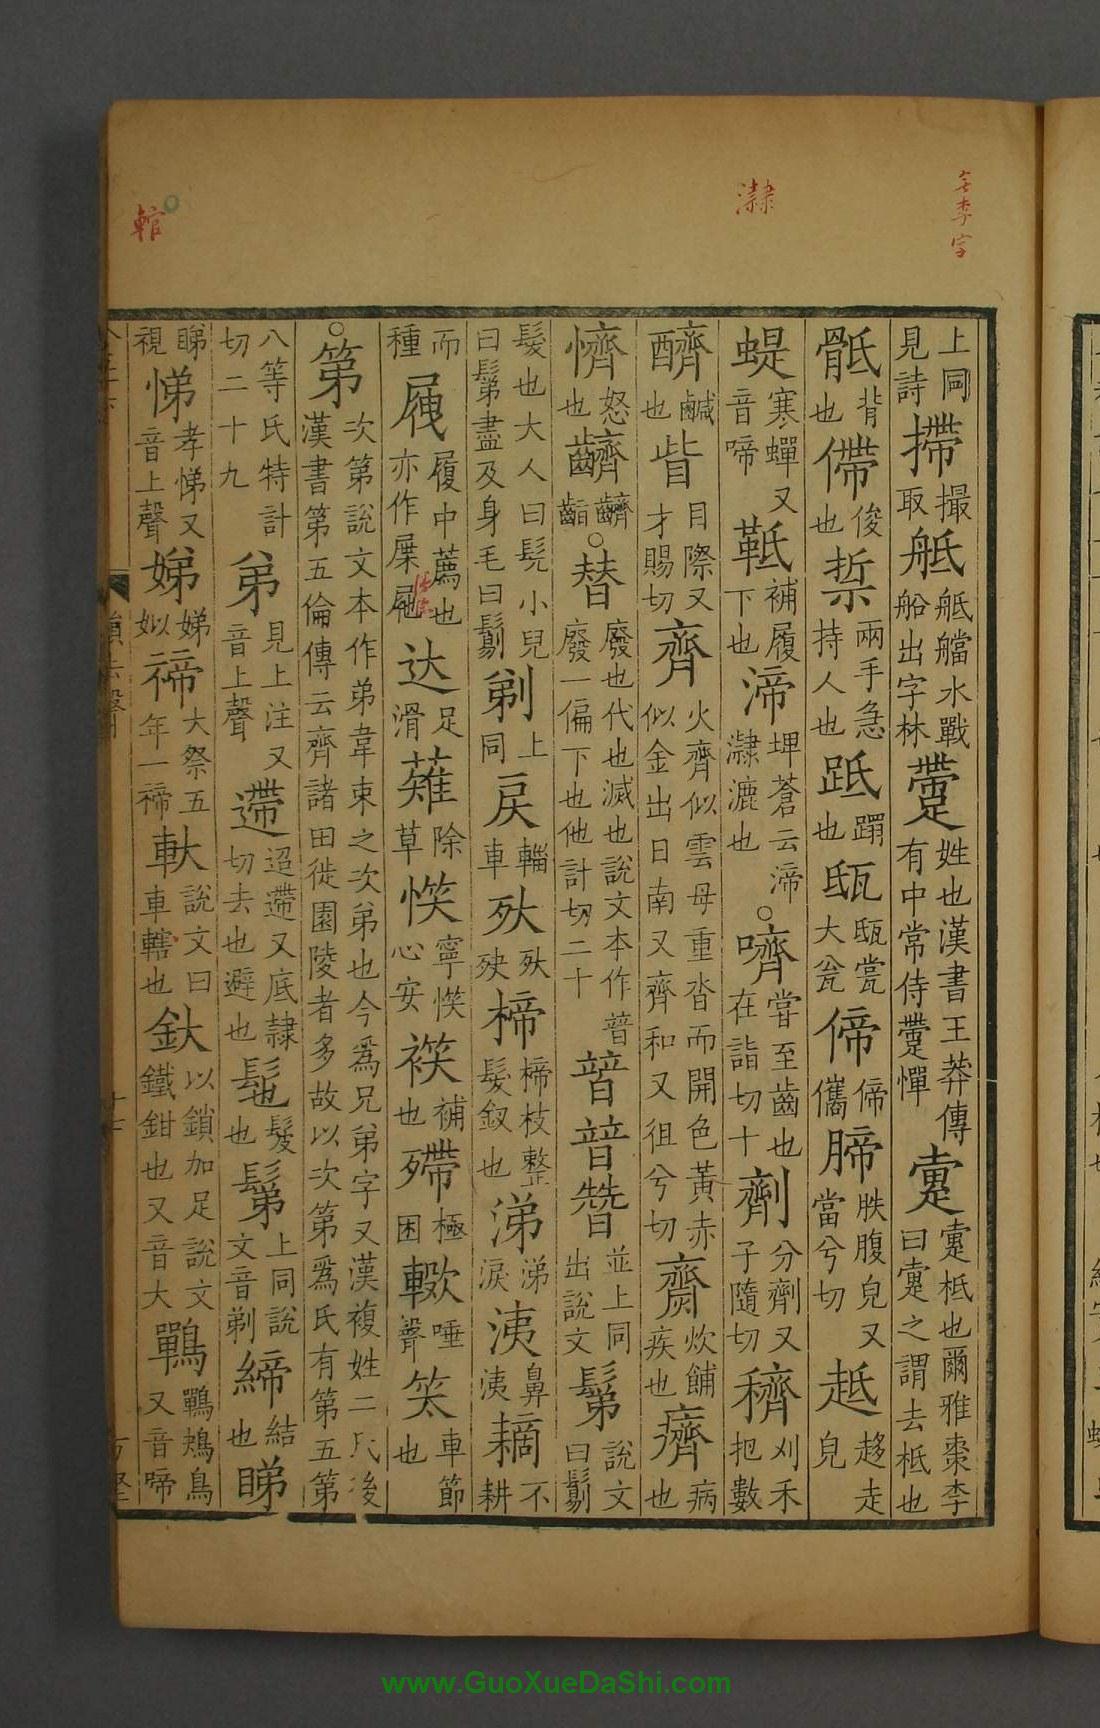 無李字
㶀
輨
上同見詩㨥撮取䑛䑛艡水戰船出字林㿃姓也漢書王莽傳有中常侍㿃惲疐疐柢也爾雅棗李曰疐之謂去柢也
骶背也㿃俊也狾兩手急持人也䟡蹋也㼵㼵甏大瓮偙偙儶腣胅腹皃又當兮切趆趍走皃
𧋘寒蟬又音啼䩚補履下也渧埤蒼云渧㶀漉也○嚌嘗至齒也在詣切十劑分劑又子隨切穧刈禾把數
醠鹹也眥目際又才賜切齊火齊似雲母重沓而開色黃赤似金出日南又齊和又徂兮切齌炊餔疾也癠病也
懠怒也䶩䶩齜○替廢也代也滅也說文本作暜廢一偏下也他計切二十暜朁並上同出說文鬄說文曰鬄
髮也大人曰髡小兒曰鬀盡及身毛曰鬄剃上同戾輜車㱝㱝殃楴楴枝整髮釵也涕涕淚洟鼻洟𦓝不耕
而種屜履中薦也亦作屟屉达足滑薙除草㥦寧㥦心安䙆補也殢極困䡾唾聲䇣車節也
○第次第說文本作弟韋束之次弟也今爲兄弟字又漢複姓二氏後漢書第五倫傳云齊諸田徙園陵者多故以次第爲氏有第五第
八等氏特計切二十九弟見上注又音上聲遰迢遰又底隷切去也避也髢髮也鬀上同說文音剃締結也睇
睇視悌孝悌又音上聲娣娣姒禘大祭五年一禘軑說文曰車轄也釱以鎖加足說文鐵鉗也又音大鷤鷤鴂鳥又音啼
十七
方堅
www.GuoXueDaShi.com